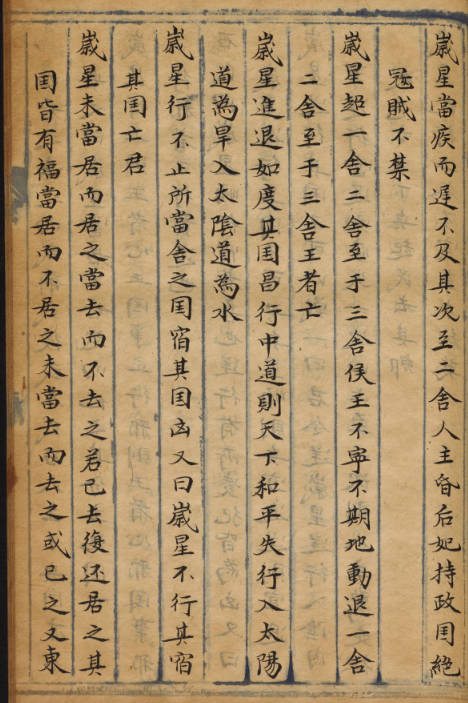 嵗星當疾而遲不及其次至二舍人主昏后妃持政囯絶
冦賊不禁
嵗星超一舍二舍至于三舍侯王不寧不期地動退一舍
二舍至于三舍王者亡
嵗星進退如度其囯昌行中道則天下和平失行入太陽
道為旱入太陰道為水
嵗星行不止所當舍之囯宿其囯凶又曰嵗星不行其宿
其囯亡君
嵗星未當居而居之當去而不去之若已去復还居之其
囯皆有福當居而不居之未當去而去之或已之又東